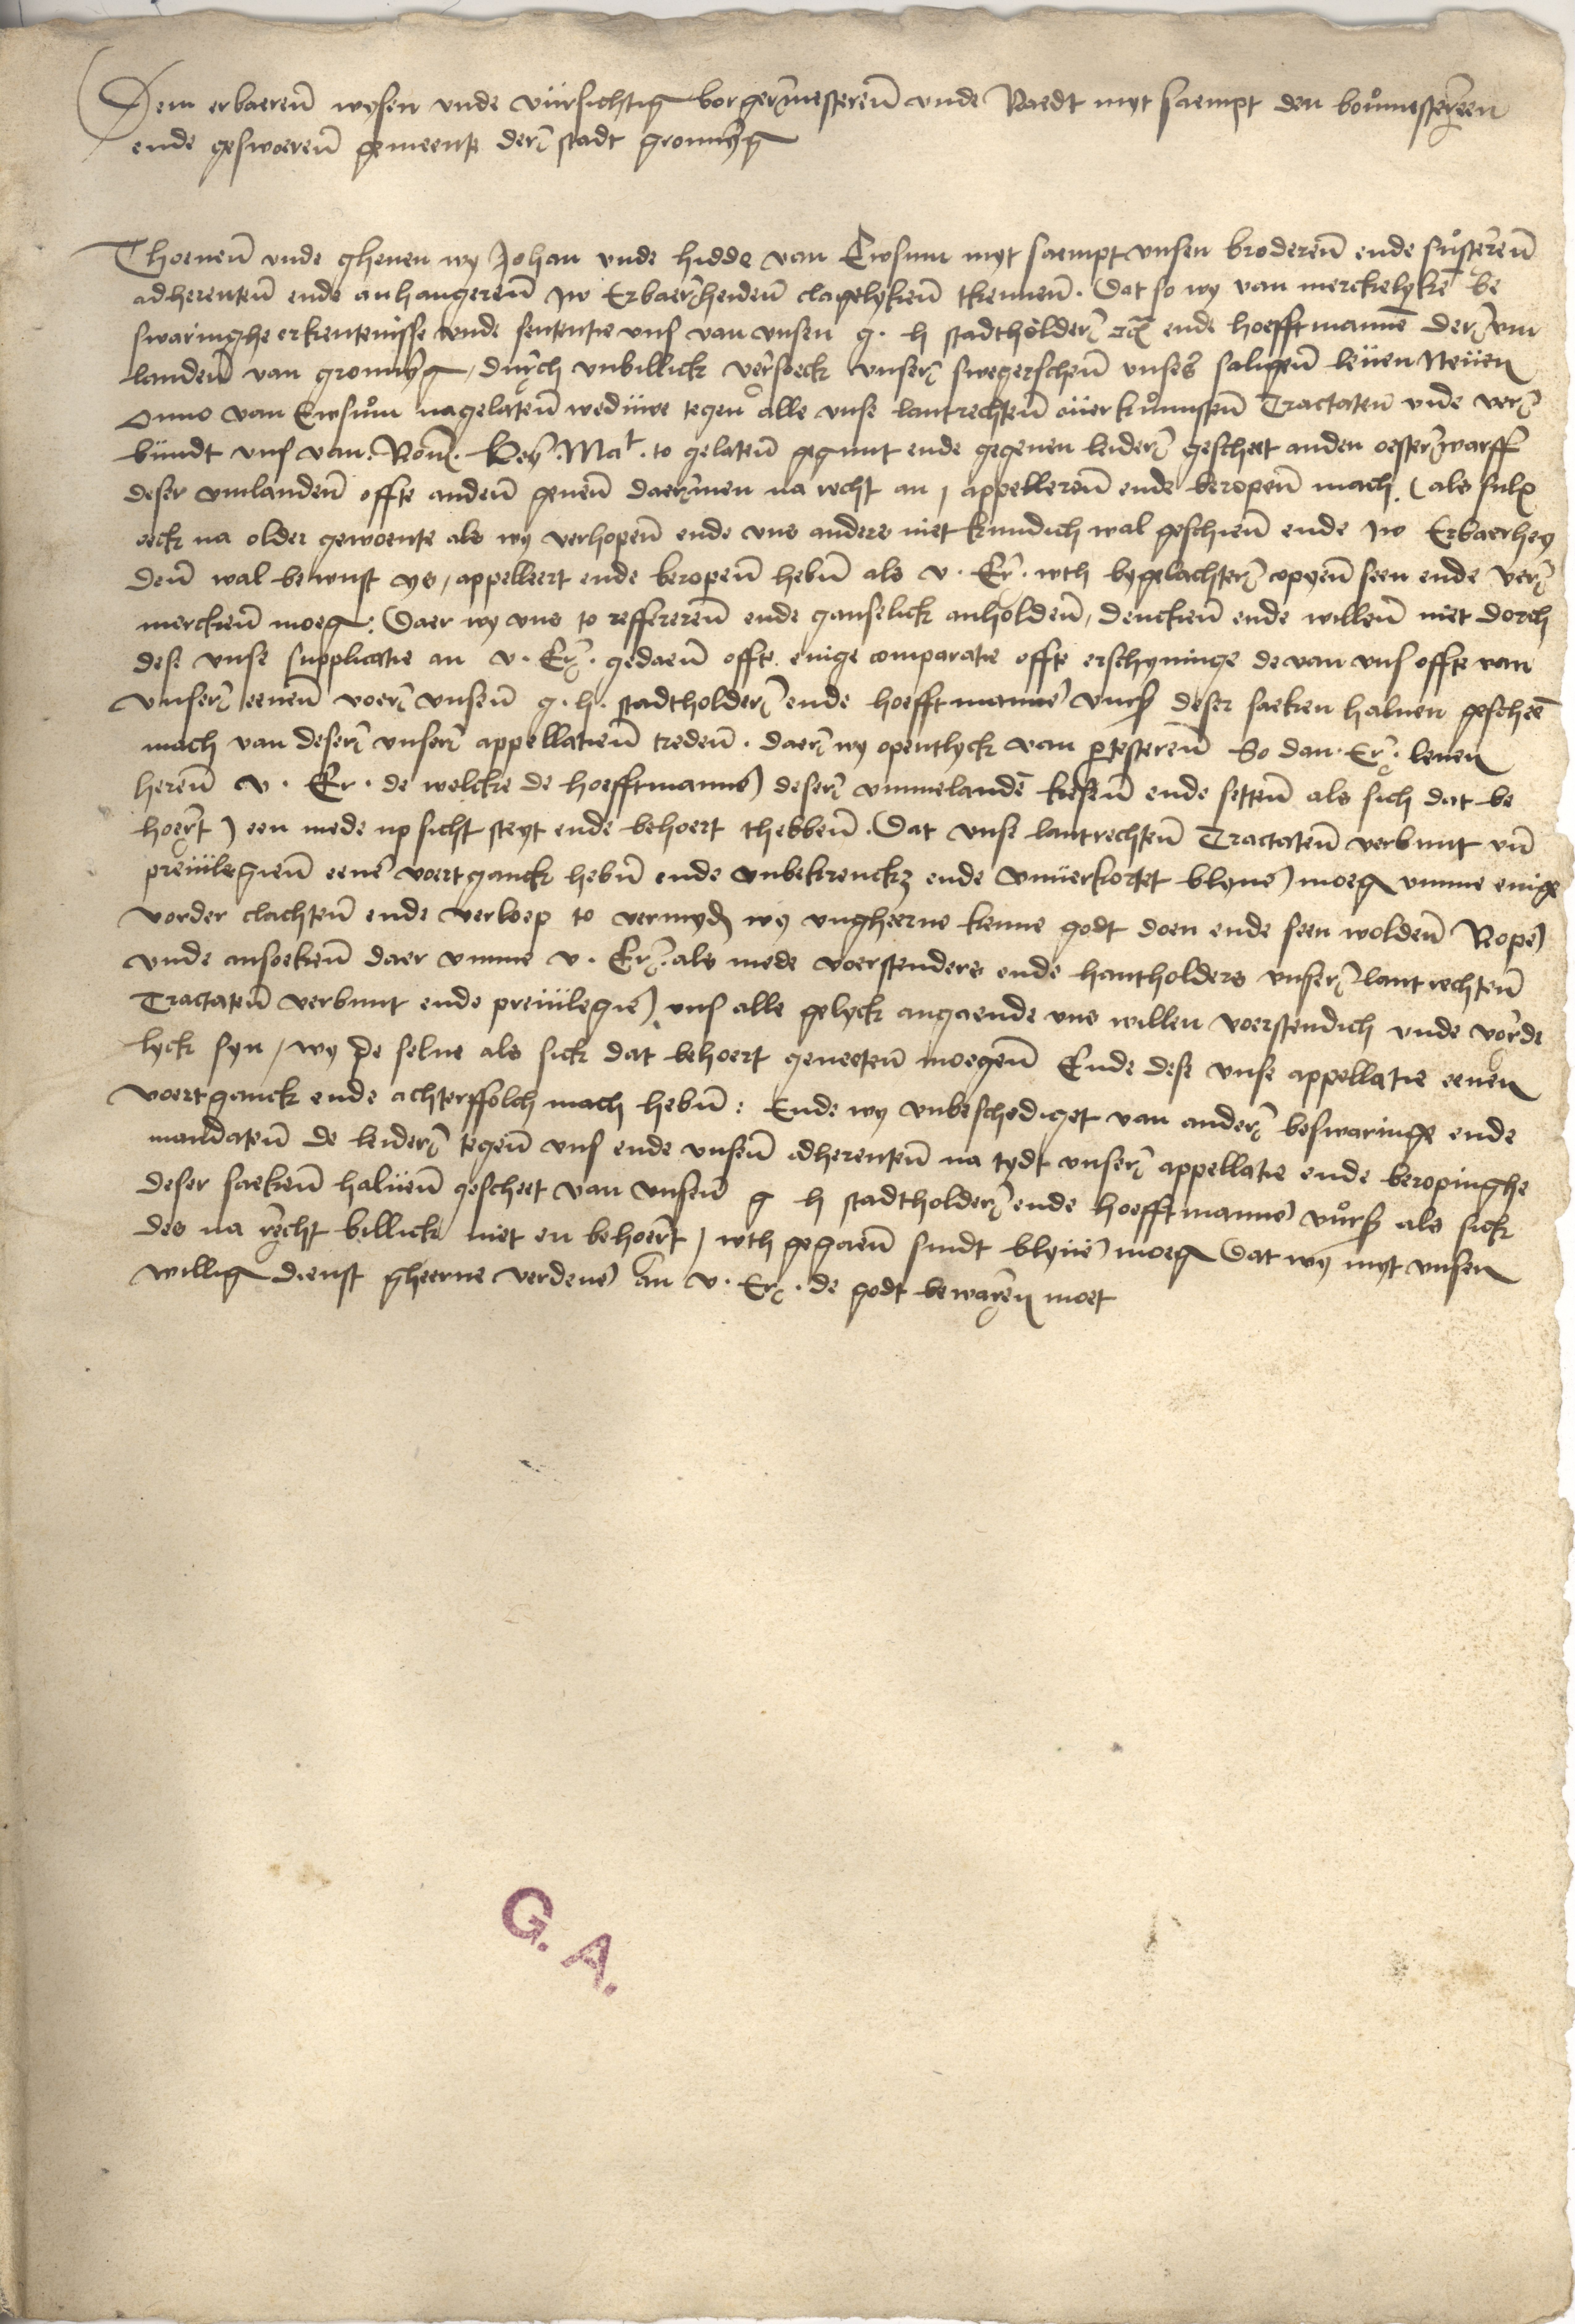 Dem erbaeren wysen vnde vürsichtig borgermesteren vnde Raedt myt saempt den bouwmestereen
ende geswoeren gemeente der stadt gronnyg
Thoenen vnde gheuen wy Johan vnde hidde van Ewsum myt saempt vnsen broderen ende susteren
adherenten ende anhangeren Jw Erbaerheiden clagelyken tkennen . Dat so wy van merckelyke be
swaringhe erkentenisse vnde sententie vns van vnsen g . h stadtholder ende hoefftmanne der vm
landen van gronnyg / durch vnbillick versoeck vnser swegerschen vnses saligen leuen Neuen
Onno van Ewsum nagelaten weduwe tegen alle vnse lantrechten ouerkumsten Tractaten vnde ver
bundt vns van . Rom . Key . Mat . to gelaten gegunt ende gegeuen leider gescheet anden oesterwarff
deser vmlanden offte anden genen daermen na recht an , appelleren ende beropen mach . ( als sulx
oeck na older gewoente als wy verhopen ende vns anders niet kundich wal geschien ende Jw Erbaerhey
den wal bewust ys , appelleert ende beropen hebn als v . Er . wth bygelachter copyen seen ende ver
mercken moeg : Daer wy vns to refferere​n ende ganselick anholden , dencken ende willen niet dorch
dese vnse supplicatie an v . Er . gedaen offte enige comparatie offte erschyninge de van vns offte van
vnser eenen voer vnsen g . h . stadtholder ende hoefftmanne vurs deser saeken haluen gescheen
mach van deser vnser appellatien treden . daer wy opentlyck van protesteren So dan . Er . leuen
heren v . Er . de welcke de hoefftmanne ) deser vmmelande kiesen ende setten als sich dat be
hoert ) een mede up sicht steyt ende behoert thebben . Dat vnse lantrechten Tractaten verbunt vn
preuilegien eene voertganck hebn ende vnbekrenckt ende vnuerkortet blyue moeg vmme enige
vorder clachten ende verloep to vermyd wy vngheerne kenne godt doen ende seen wolden Rope
vnde ansoeken daer vmme v . Er . als mede voerstenders ende hantholders vnser lantrechten
Tractaten verbunt ende preuilegie , vns alle gelyck angaende vns willen voerstendich vnde vorde
lyck syn / wy de selue als sick dat behoert geneeten moegen Ende dese vnse appellatie eenen
voertganck ende achterffolch mach hebn : Ende wy vnbeschediget van ander beswaringe ende
mandaten de leider tegen vns ende vnsen adherenten na tydt vnser appellatie ende beropinghe
deser saeken haluen gescheet van vnsen g h stadtholder ende hoefftmanne vurs als sick
des na recht billick niet en behoert , wth gegaen sindt blyue moeg Dat wy myt vnsen
willig dienst gheerne verdene an v . Er . de godt bewaren moet
G. A.